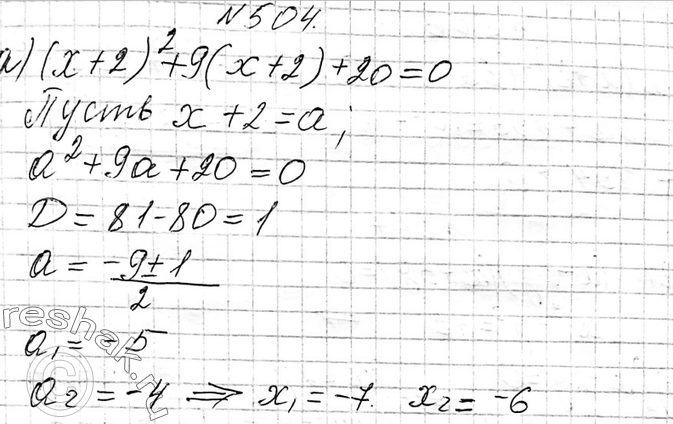 N504.
а) (x+2)²+9(x+2)+20=0
Пусть x+2=a;
a²+9a+20=0
D=81-80=1
a = (-9±1)/2
a₁=-5
a₂=-4 ⇒ x₁=-7. x₂=-6
reshak.ru